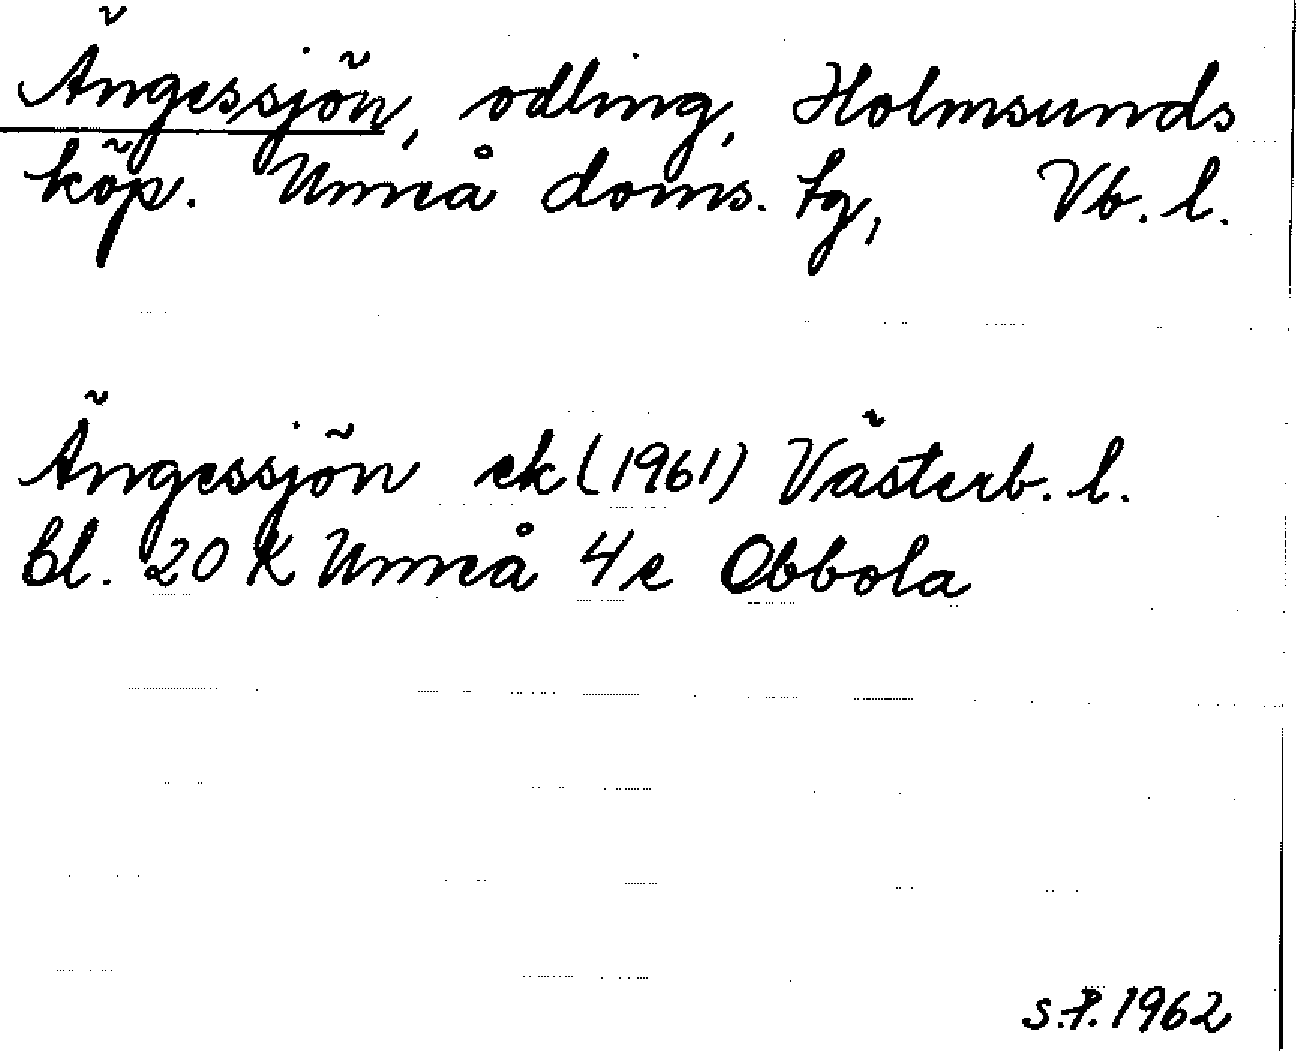 Ängessjön, odling, Holmsunds
köp. Umeå doms. tg, Vb. l.
Ängessjön ek (1961) Västerb. l.
bl. 20 K Umeå 4 e Obbola
S.P. 1962